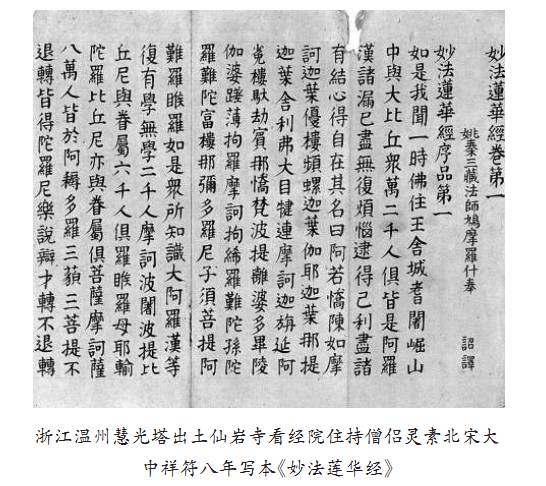 妙法蓮華經卷第一
姚秦三藏法師鳩摩羅什奉 詔譯
妙法蓮華經序品第一
如是我聞一時佛住王舍城耆闍崛山
中與大比丘衆萬二千人俱皆是阿羅
漢諸漏已盡無復煩惱逮得己利盡諸
有結心得自在其名曰阿若憍陳如摩
訶迦葉優樓頻螺迦葉伽耶迦葉那提
迦葉舍利弗大目犍連摩訶迦旃延阿
㝹樓馱劫賓那憍梵波提離婆多畢陵
伽婆蹉薄拘羅摩訶拘絺羅難陀孫陀
羅難陀富樓那彌多羅尼子須菩提阿
難羅睺羅如是衆所知識大阿羅漢等
復有學無學二千人摩訶波闍波提比
丘尼與眷屬六千人俱羅睺羅母耶輸
陀羅比丘尼亦與眷屬俱菩薩摩訶薩
八萬人皆於阿耨多羅三藐三菩提不
退轉皆得陀羅尼樂說辯才轉不退轉
浙江温州慧光塔出土仙岩寺看经院住持僧侣灵素北宋大
中祥符八年写本《妙法莲华经》